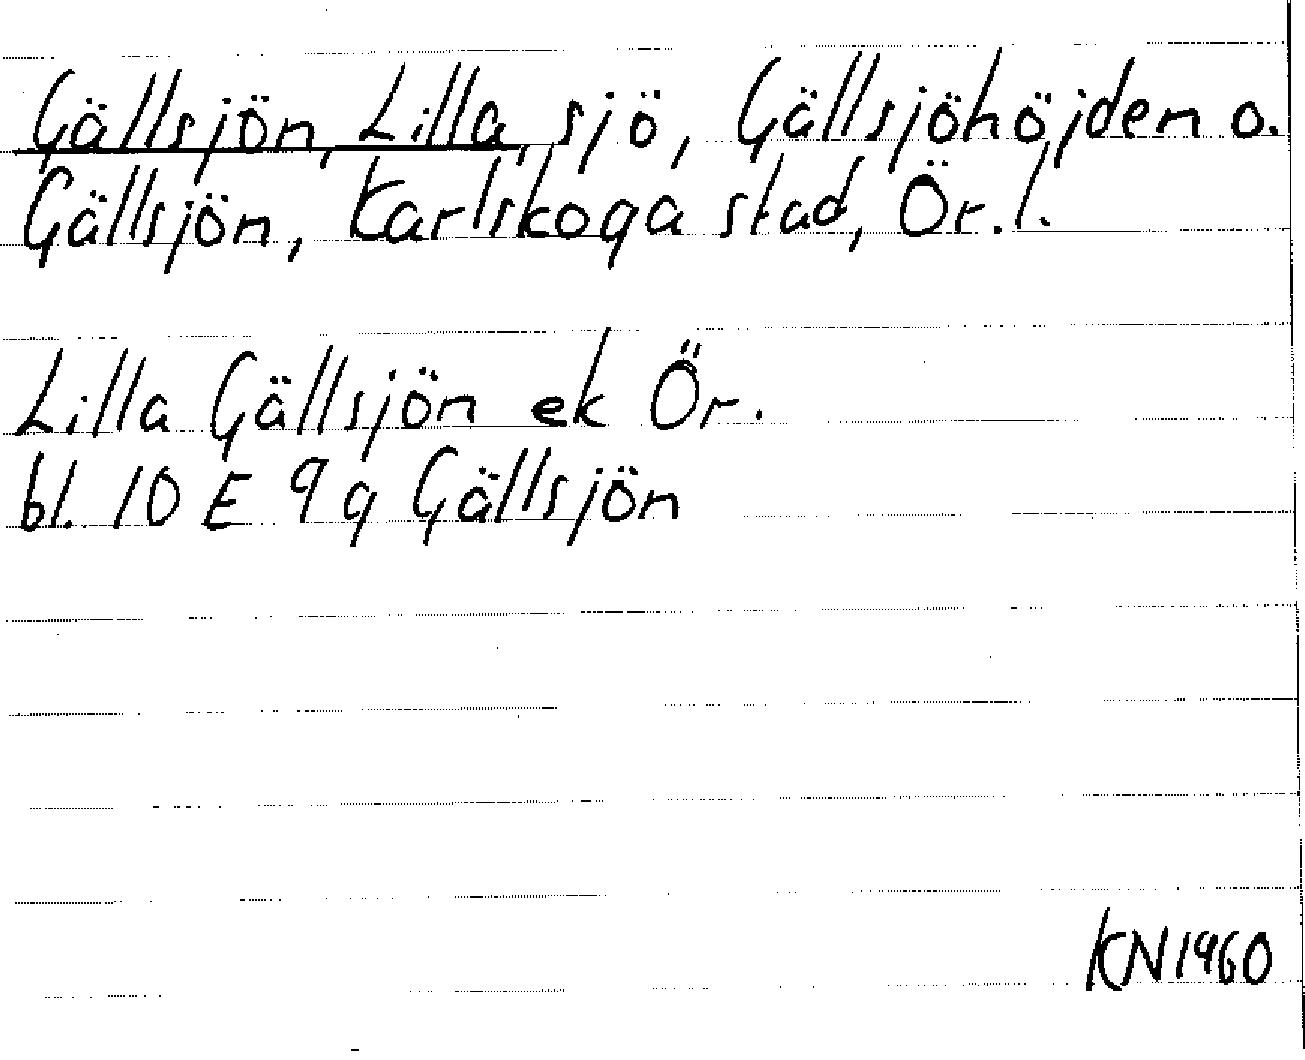 Gällsjön, Lilla, sjö, Gällsjöhöjden o.
Gällsjön, Karlskoga stad, Ör. l.
Lilla Gällsjön ek Ör.
bl. 10 E 9 g Gällsjön
KN 1960